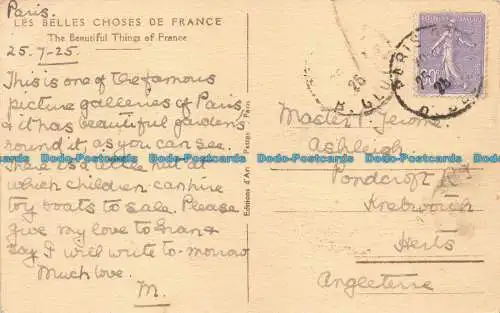 Paris.
LES BELLES CHOSES DE FRANCE
The Beautiful Things of France
25.7-25.
This is one of the famous
picture galleries of Paris
& it has beautiful gardens
round it, as you can see.
There is a little hut at
which children can hire
toy boats to sale. Please
give my love to Gran &
say I will write to-morrow
Much love.
M.
Editions d'Art
Paris
Master J. Jerome
Ashleigh
Pondcroft Rd
Knebworth
Herts
Angleterre
Dodo-Postcards Dodo-Postcards Dodo-Postcards Dodo-Postcards